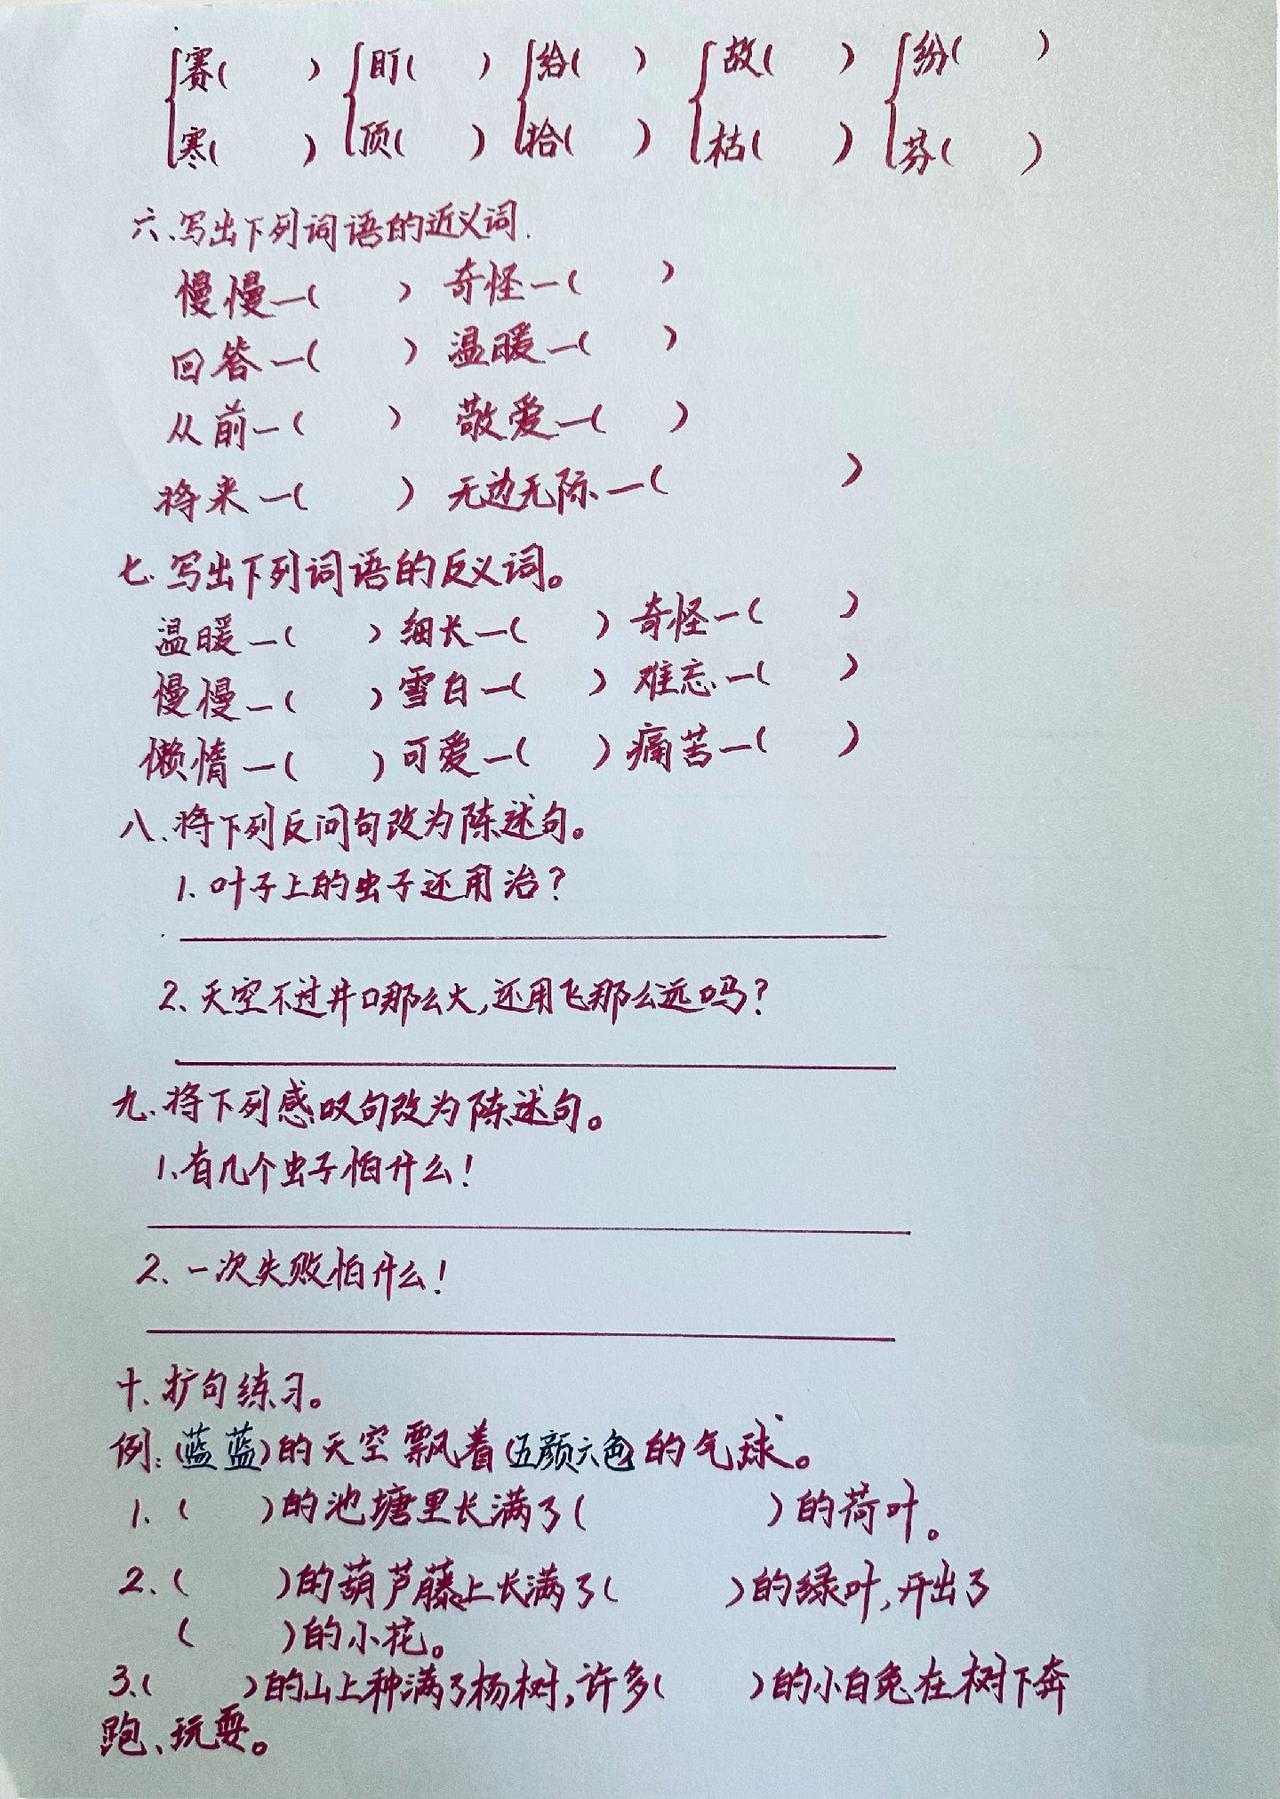 赛(　) 盯(　) 给(　) 故(　) 纷(　)
寒(　) 顶(　) 拾(　) 枯(　) 芬(　)
六、写出下列词语的近义词.
慢慢—(　) 奇怪—(　)
回答—(　) 温暖—(　)
从前—(　) 敬爱—(　)
将来—(　) 无边无际—(　)
七、写出下列词语的反义词。
温暖—(　) 细长—(　) 奇怪—(　)
慢慢—(　) 雪白—(　) 难忘—(　)
懒惰—(　) 可爱—(　) 痛苦—(　)
八、将下列反问句改为陈述句。
1. 叶子上的虫子还用治?
2、天空不过井口那么大,还用飞那么远吗?
九、将下列感叹句改为陈述句。
1、有几个虫子怕什么!
2、一次失败怕什么!
十、扩句练习。
例:(蓝蓝)的天空飘着(五颜六色)的气球。
1、(　)的池塘里长满了(　)的荷叶。
2、(　)的葫芦藤上长满了(　)的绿叶,开出了
(　)的小花。
3、(　)的山上种满了杨树,许多(　)的小白兔在树下奔
跑、玩耍。